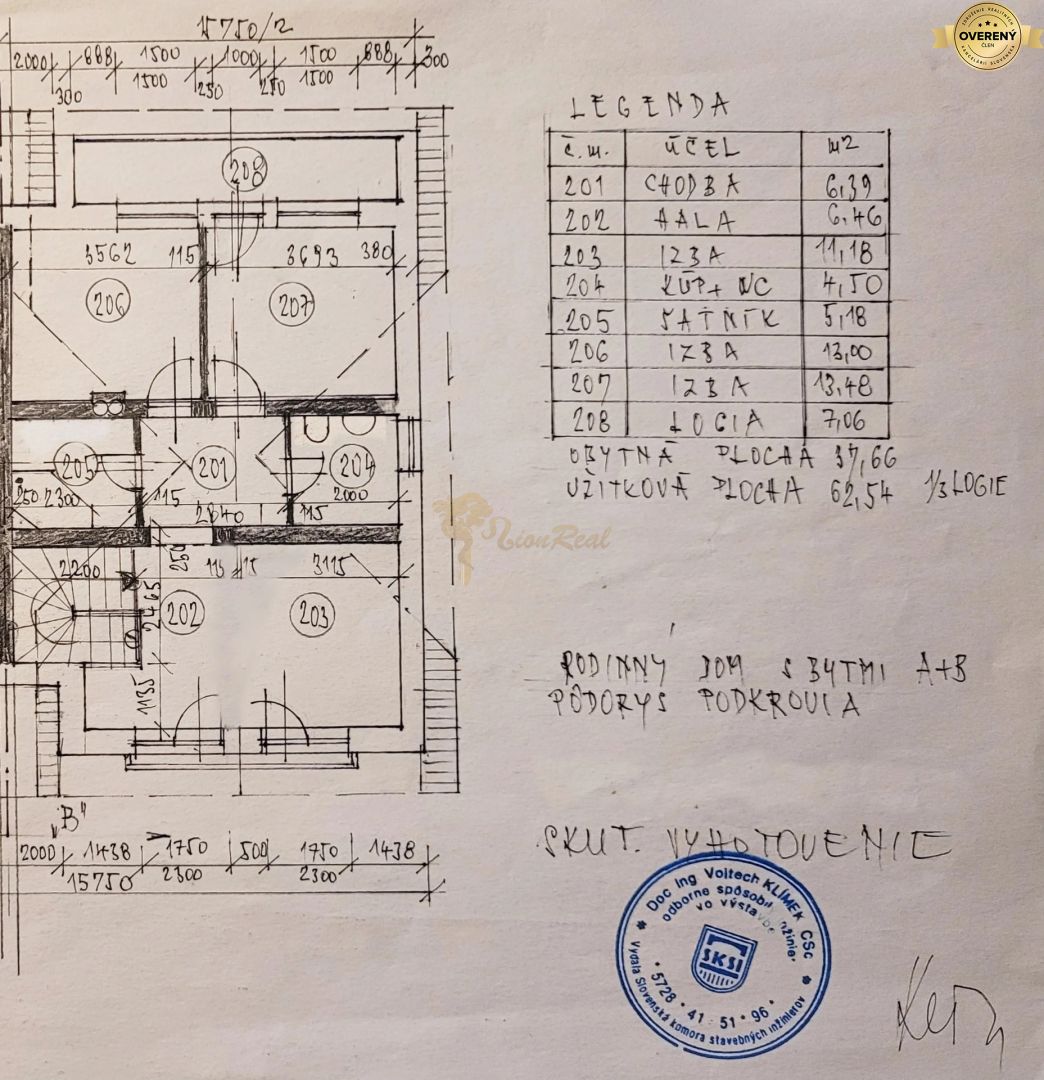 ZDRUŽENIE REALITNÝCH
OVERENÝ
ČLEN
KANCELÁRIÍ SLOVENSKA
15750/2
2000 888 1500 1000 1500 888 300
300 1500 250 250 1500
LEGENDA
č.m. ÚČEL m2
201 CHODBA 6,39
202 HALA 6,46
203 IZBA 11,18
204 KÚP+ WC 4,50
205 ŠATNÍK 5,18
206 IZBA 13,00
207 IZBA 13,48
208 LOGIA 7,06
OBYTNÁ PLOCHA 37,66
UŽITKOVÁ PLOCHA 62,54 1/3 LOGIE
208
3562 115 3693 380
206 207
205 201 204
250 2300 115 2840 115 2000
LionReal
250
2200 115 115 3115
2465
202 203
1135
RODINNÝ DOM S BYTMI A+B
PÔDORYS PODKROVIA
„B"
2000 1438 1750 500 1750 1438
2300 2300
15750
SKUT. VYHOTOVENIE
Doc Ing Vojtech KLIMEK CSc
odborne spôsobilý inžinier
vo výstavbe
SKSI
* 5728 * 41 * 51 * 96 *
Vydala Slovenská komora stavebných inžinierov